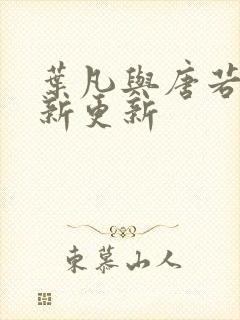 葉凡與唐若
新更新
東慕山人